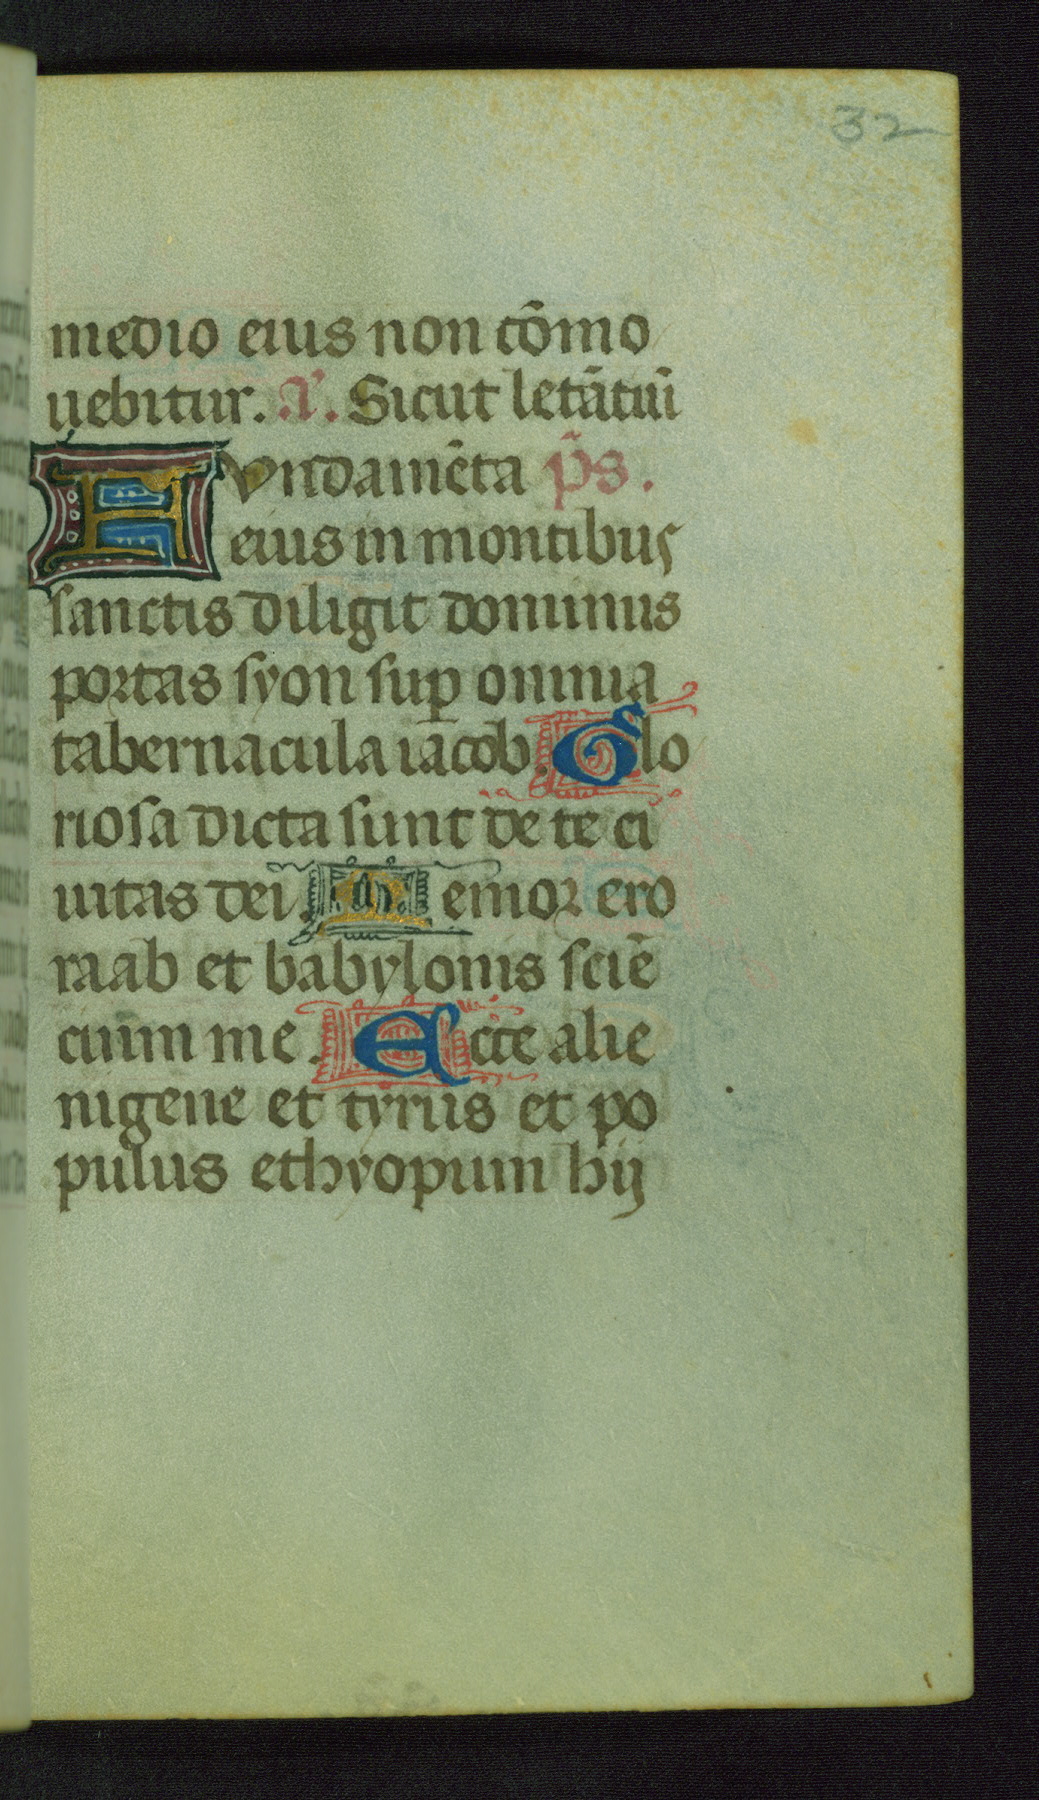 32
medio eius non cōmo
uebitur. A͛. Sicut letātiū
Fvndamēta p̄s.
eius in montibus
sanctis diligit dominus
portas syon sup̱ omnia
tabernacula iacob. Glo
riosa dicta sunt de te ci
uitas dei. Memor ero
raab et babylonis sciē
cium me. Ecce alie
nigene et tyrus et po
pulus ethyopum hij